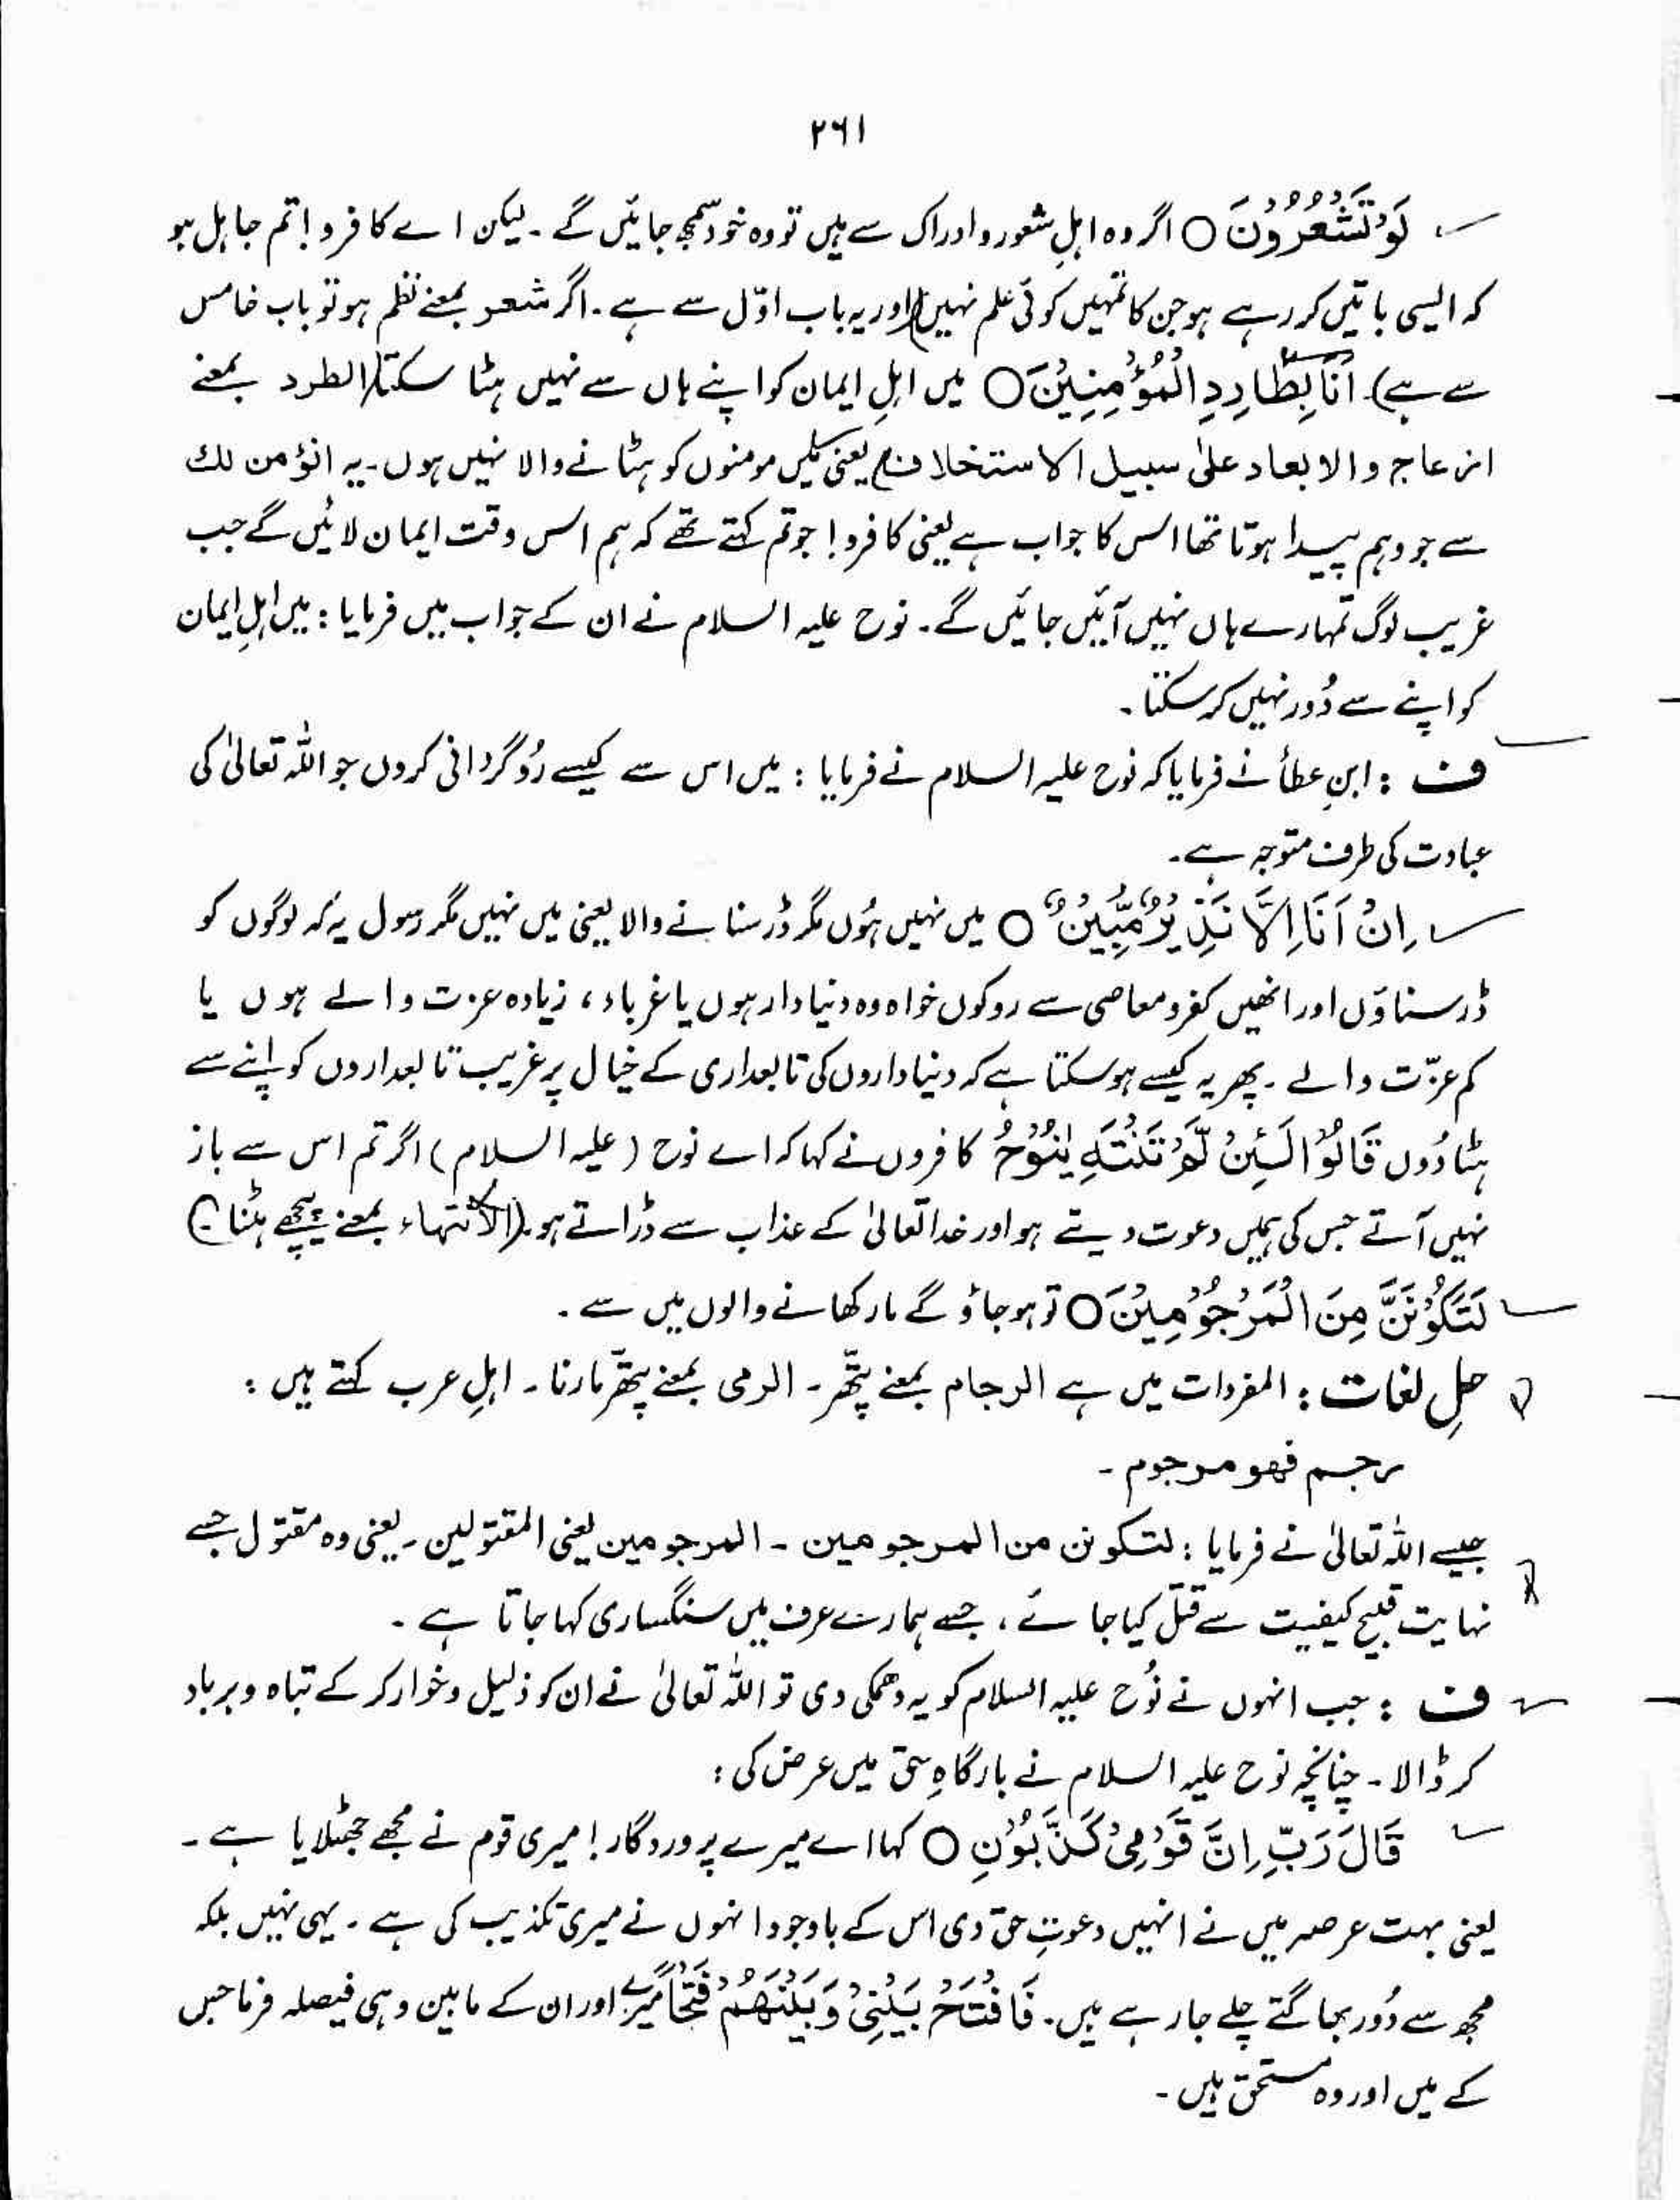 ۲۶۱
لَوْ تَشْعُرُوْنَ ○ اگر وہ اہلِ شعور و ادراک سے ہیں تو وہ خود سمجھ جائیں گے۔ لیکن اے کافرو! تم جاہل ہو
کہ ایسی باتیں کر رہے ہو جن کا تمہیں کوئی علم نہیں (اور یہ باب اوّل سے ہے۔ اگر شعر بمعنے نظم ہو تو باب خامس
سے ہے)۔ اَنَا بِطَارِدِ الْمُؤْمِنِيْنَ ○ میں اہلِ ایمان کو اپنے ہاں سے نہیں ہٹا سکتا (الطرد بمعنے
ازعاج والابعاد علیٰ سبیل الاستخلاف) یعنی میں مومنوں کو ہٹانے والا نہیں ہوں۔ یہ انؤمن لك
سے جو وہم پیدا ہوتا تھا اس کا جواب ہے یعنی کافرو! جو تم کہتے تھے کہ ہم اس وقت ایمان لائیں گے جب
غریب لوگ تمہارے ہاں نہیں آئیں جائیں گے۔ نوح علیہ السلام نے ان کے جواب میں فرمایا: میں اہلِ ایمان
کو اپنے سے دُور نہیں کر سکتا۔
ف : ابنِ عطأ نے فرمایا کہ نوح علیہ السلام نے فرمایا : میں اس سے کیسے رُوگردانی کروں جو اللہ تعالیٰ کی
عبادت کی طرف متوجہ ہے۔
اِنْ اَنَا اِلَّا نَذِيْرٌ مُّبِيْنٌ ○ میں نہیں ہُوں مگر ڈر سنانے والا یعنی میں نہیں مگر رسول یہ کہ لوگوں کو
ڈر سناؤں اور انھیں کفر و معاصی سے روکوں خواہ وہ دنیا دار ہوں یا غرباء، زیادہ عزت والے ہوں یا
کم عزّت والے ۔ پھر یہ کیسے ہو سکتا ہے کہ دنیاداروں کی تابعداری کے خیال پر غریب تابعداروں کو اپنے سے
ہٹا دُوں قَالُوْا لَئِنْ لَّمْ تَنْتَهِ يٰنُوْحُ کافروں نے کہا کہ اے نوح (علیہ السلام) اگر تم اس سے باز
نہیں آتے جس کی ہمیں دعوت دیتے ہو اور خدا تعالیٰ کے عذاب سے ڈراتے ہو۔ (الانتہاء بمعنے پیچھے ہٹنا۔)
لَتَكُوْنَنَّ مِنَ الْمَرْجُوْمِيْنَ ○ تو ہو جاؤ گے مار کھانے والوں میں سے ۔
حلِ لغات : المفردات میں ہے الرجام بمعنے پتّھر۔ الرمی بمعنے پتّھر مارنا۔ اہلِ عرب کہتے ہیں :
رجم فهو مرجوم ۔
جیسے اللہ تعالیٰ نے فرمایا : لتکونن من المرجومین ۔ المرجومین یعنی المقتولین۔ یعنی وہ مقتول جسے
نہایت قبیح کیفیت سے قتل کیا جائے ، جسے ہمارے عرف میں سنگساری کہا جاتا ہے ۔
ف : جب انہوں نے نُوح علیہ السلام کو یہ دھمکی دی تو اللہ تعالیٰ نے ان کو ذلیل و خوار کر کے تباہ و برباد
کر ڈالا ۔ چنانچہ نوح علیہ السلام نے بارگاہِ حق میں عرض کی :
قَالَ رَبِّ اِنَّ قَوْمِيْ كَذَّبُوْنِ ○ کہا اے میرے پروردگار! میری قوم نے مجھے جھٹلایا ہے ۔
یعنی بہت عرصہ میں نے انہیں دعوتِ حق دی اس کے باوجود انہوں نے میری تکذیب کی ہے ۔ یہی نہیں بلکہ
مجھ سے دُور بھاگتے چلے جا رہے ہیں۔ فَافْتَحْ بَيْنِيْ وَبَيْنَهُمْ فَتْحًا میرے اور ان کے مابین وہی فیصلہ فرما جس
کے میں اور وہ مستحق ہیں ۔